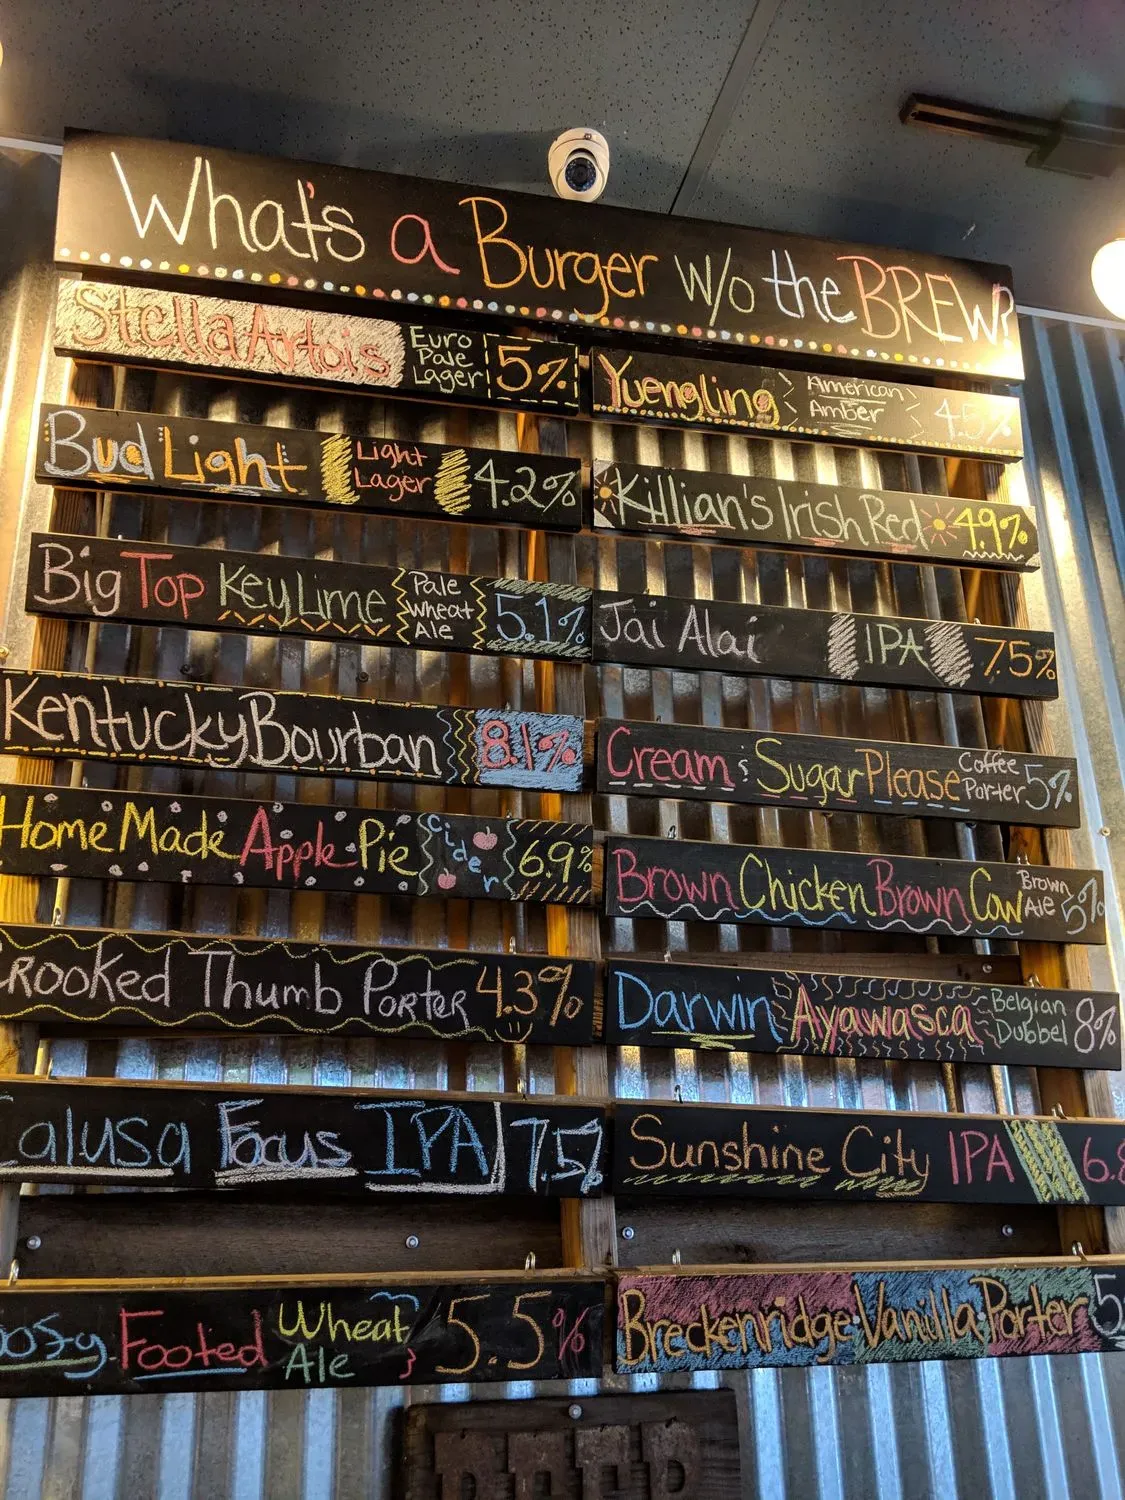 What's a Burger w/o the BREW?
Stella Artois Euro Pale Lager 5%
Yuengling American Amber 4.5%
Bud Light Light Lager 4.2%
Killian's Irish Red 4.9%
Big Top Key Lime Pale Wheat Ale 5.1%
Jai Alai IPA 7.5%
Kentucky Bourban 8.1%
Cream & Sugar Please Coffee Porter 5%
Home Made Apple Pie Cider 6.9%
Brown Chicken Brown Cow Brown Ale 5%
Crooked Thumb Porter 4.3%
Darwin Ayawasca Belgian Dubbel 8%
Calusa Focus IPA 7.5%
Sunshine City IPA 6.8
Footed Wheat Ale 5.5%
Breckenridge Vanilla Porter 5
BEER